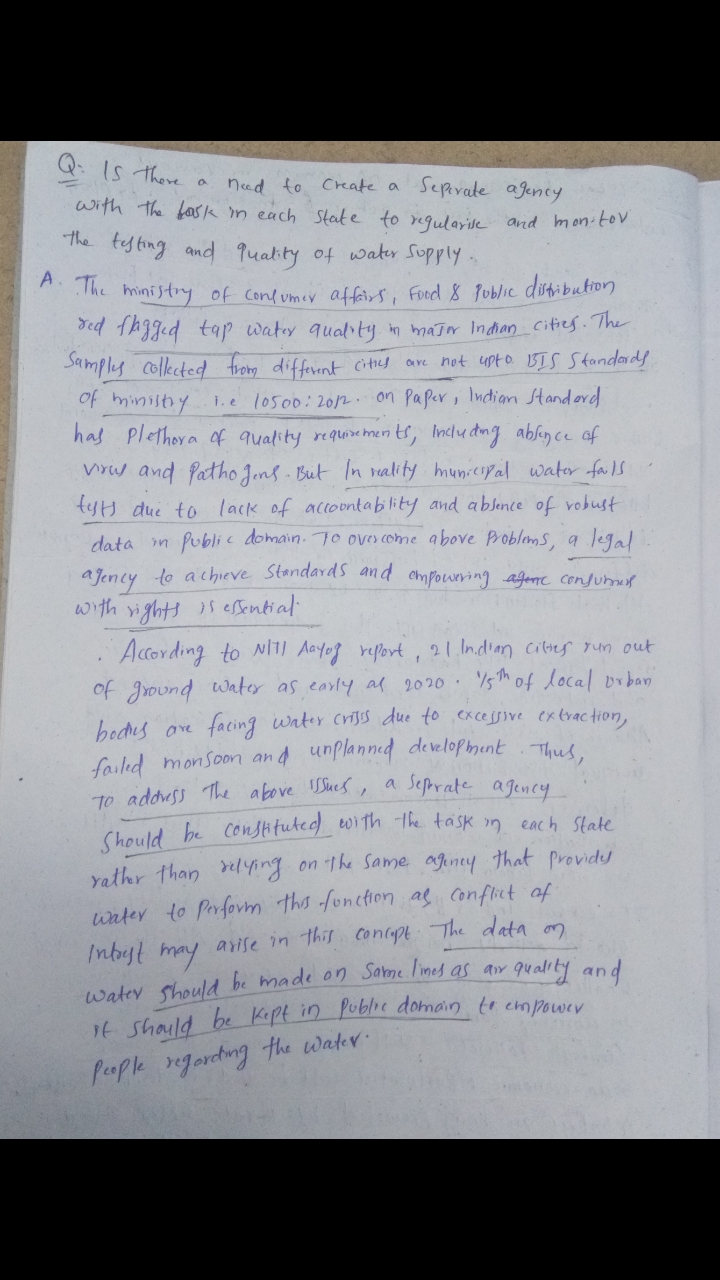 Q. Is there a need to create a Seperate agency
with the task in each State to regularise and monitor
the testing and quality of water Supply.
A. The ministry of consumer affairs, Food & Public distribution
red flagged tap water quality in major Indian cities. The
Samples collected from different cities are not upto BIS Standards
of ministry i.e 10500:2012. on Paper, Indian Standard
has Plethora of quality requirements, Including absence of
virus and Pathogens. But In reality municipal water fails
tests due to lack of accountability and absence of robust
data in Public domain. To overcome above Problems, a legal
agency to achieve Standards and empowering agenc consumers
with rights is essential.
. According to NITI Aayog report, 21 Indian cities run out
of ground water as early as 2020. 1/5th of local urban
bodies are facing water crisis due to excessive extraction,
failed monsoon and unplanned development. Thus,
To address the above issues, a Seprate agency
Should be constituted with the task in each State
rather than relying on the Same agency that Provides
water to Perform this function as conflict of
Intrest may arise in this concept. The data on
water should be made on Same lines as air quality and
it should be kept in Public domain to empower
People regarding the water.